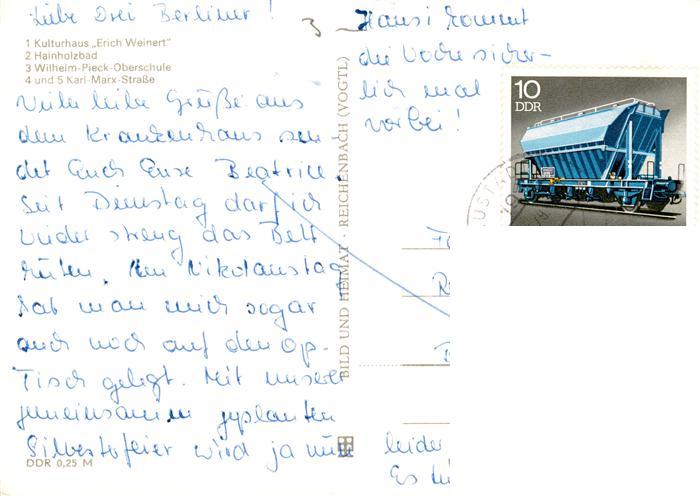 Liebe Drei Berliner!
1 Kulturhaus „Erich Weinert"
2 Hainholzbad
3 Wilhelm-Pieck-Oberschule
4 und 5 Karl-Marx-Straße
Viele liebe Grüße aus
dem Krankenhaus sen-
det Euch Eure Beatrice.
Seit Dienstag darf ich
wieder streng das Bett
hüten. Am Nikolaustag
hat man mich sogar
auch noch auf den Op-
Tisch gelegt. Mit unserer
gemeinsamen geplanten
Silvesterfeier wird ja nun
DDR 0,25 M
BILD UND HEIMAT · REICHENBACH (VOGTL)
3
Hansi kommt
die Woche sicher-
lich mal
vorbei!
10
DDR
leider
Es